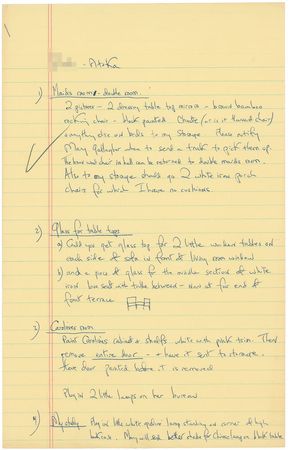 - Attka
1) Maids room - double room.
2 pictures - 2 dressing table top mirrors - brown bamboo
rocking chair - black painted (or is it Thonet chair)
everything else and beds to my storage. Please notify
Mary Gallagher when to send a truck to pick them up.
The chair in hall can be returned to double maids room.
Also to my storage should go 2 white iron porch
chairs for which I have no cushions.
2) Glass for table tops
a) Could you get glass top for 2 little tables on
each side of sofa in front of living room window
b) and a piece of glass for the middle section of white
iron love seat with table between - now at far end of
front terrace
3) Carolines room
Paint Carolines cabinet & shelfs white with pink trim. Then
remove entire door - & have it sent to storage.
Have door painted before it is removed
Plug in 2 little lamps on her bureau
4) My study - Plug in little white lamp standing in corner of high
bookcase. Mary will send better shade for Chinese lamp on black table